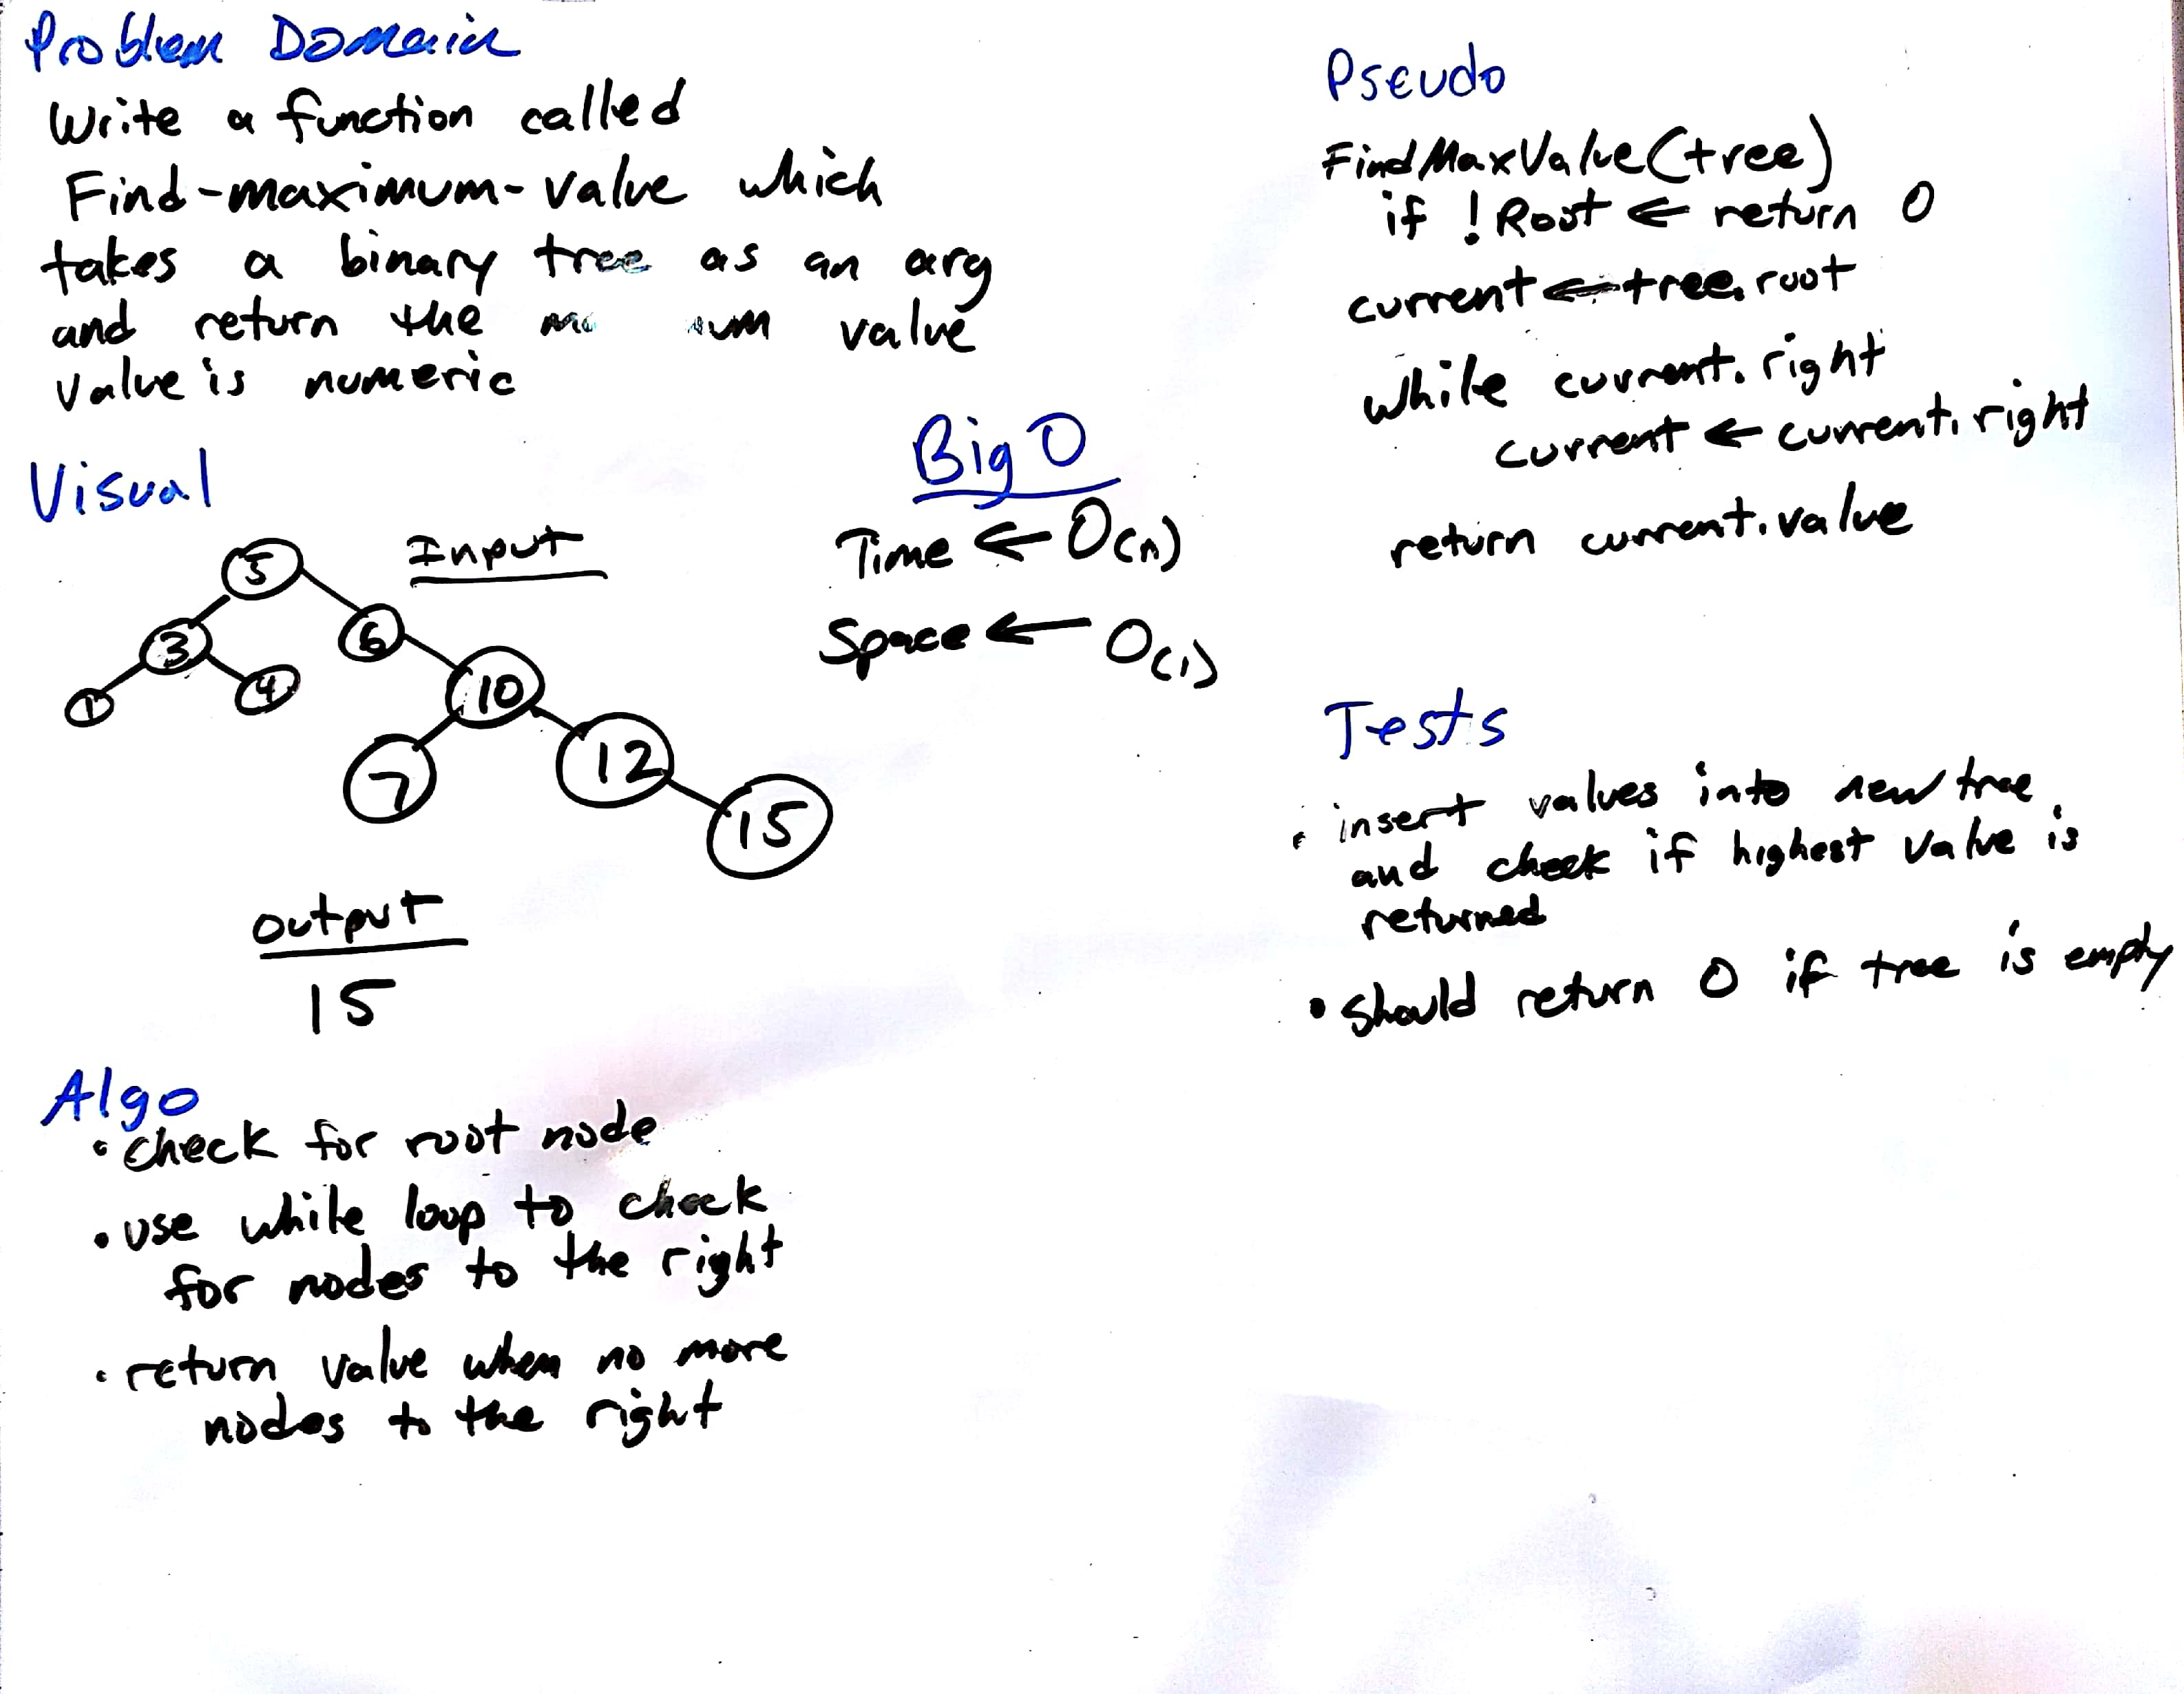 Problem Domain
Write a function called
Find-maximum-value which
takes a binary tree as an arg
and return the value
value is numeric
Visual
Input
5
3
6
1
4
10
7
12
15
Output
15
Big O
Time ← O(n)
Space ← O(1)
Algo
• check for root node
• use while loop to check
for nodes to the right
• return value when no more
nodes to the right
Pseudo
FindMaxValue(tree)
if !Root ← return 0
current ← tree.root
while current.right
current ← current.right
return current.value
Tests
• insert values into new tree,
and check if highest value is
returned
• should return 0 if tree is empty